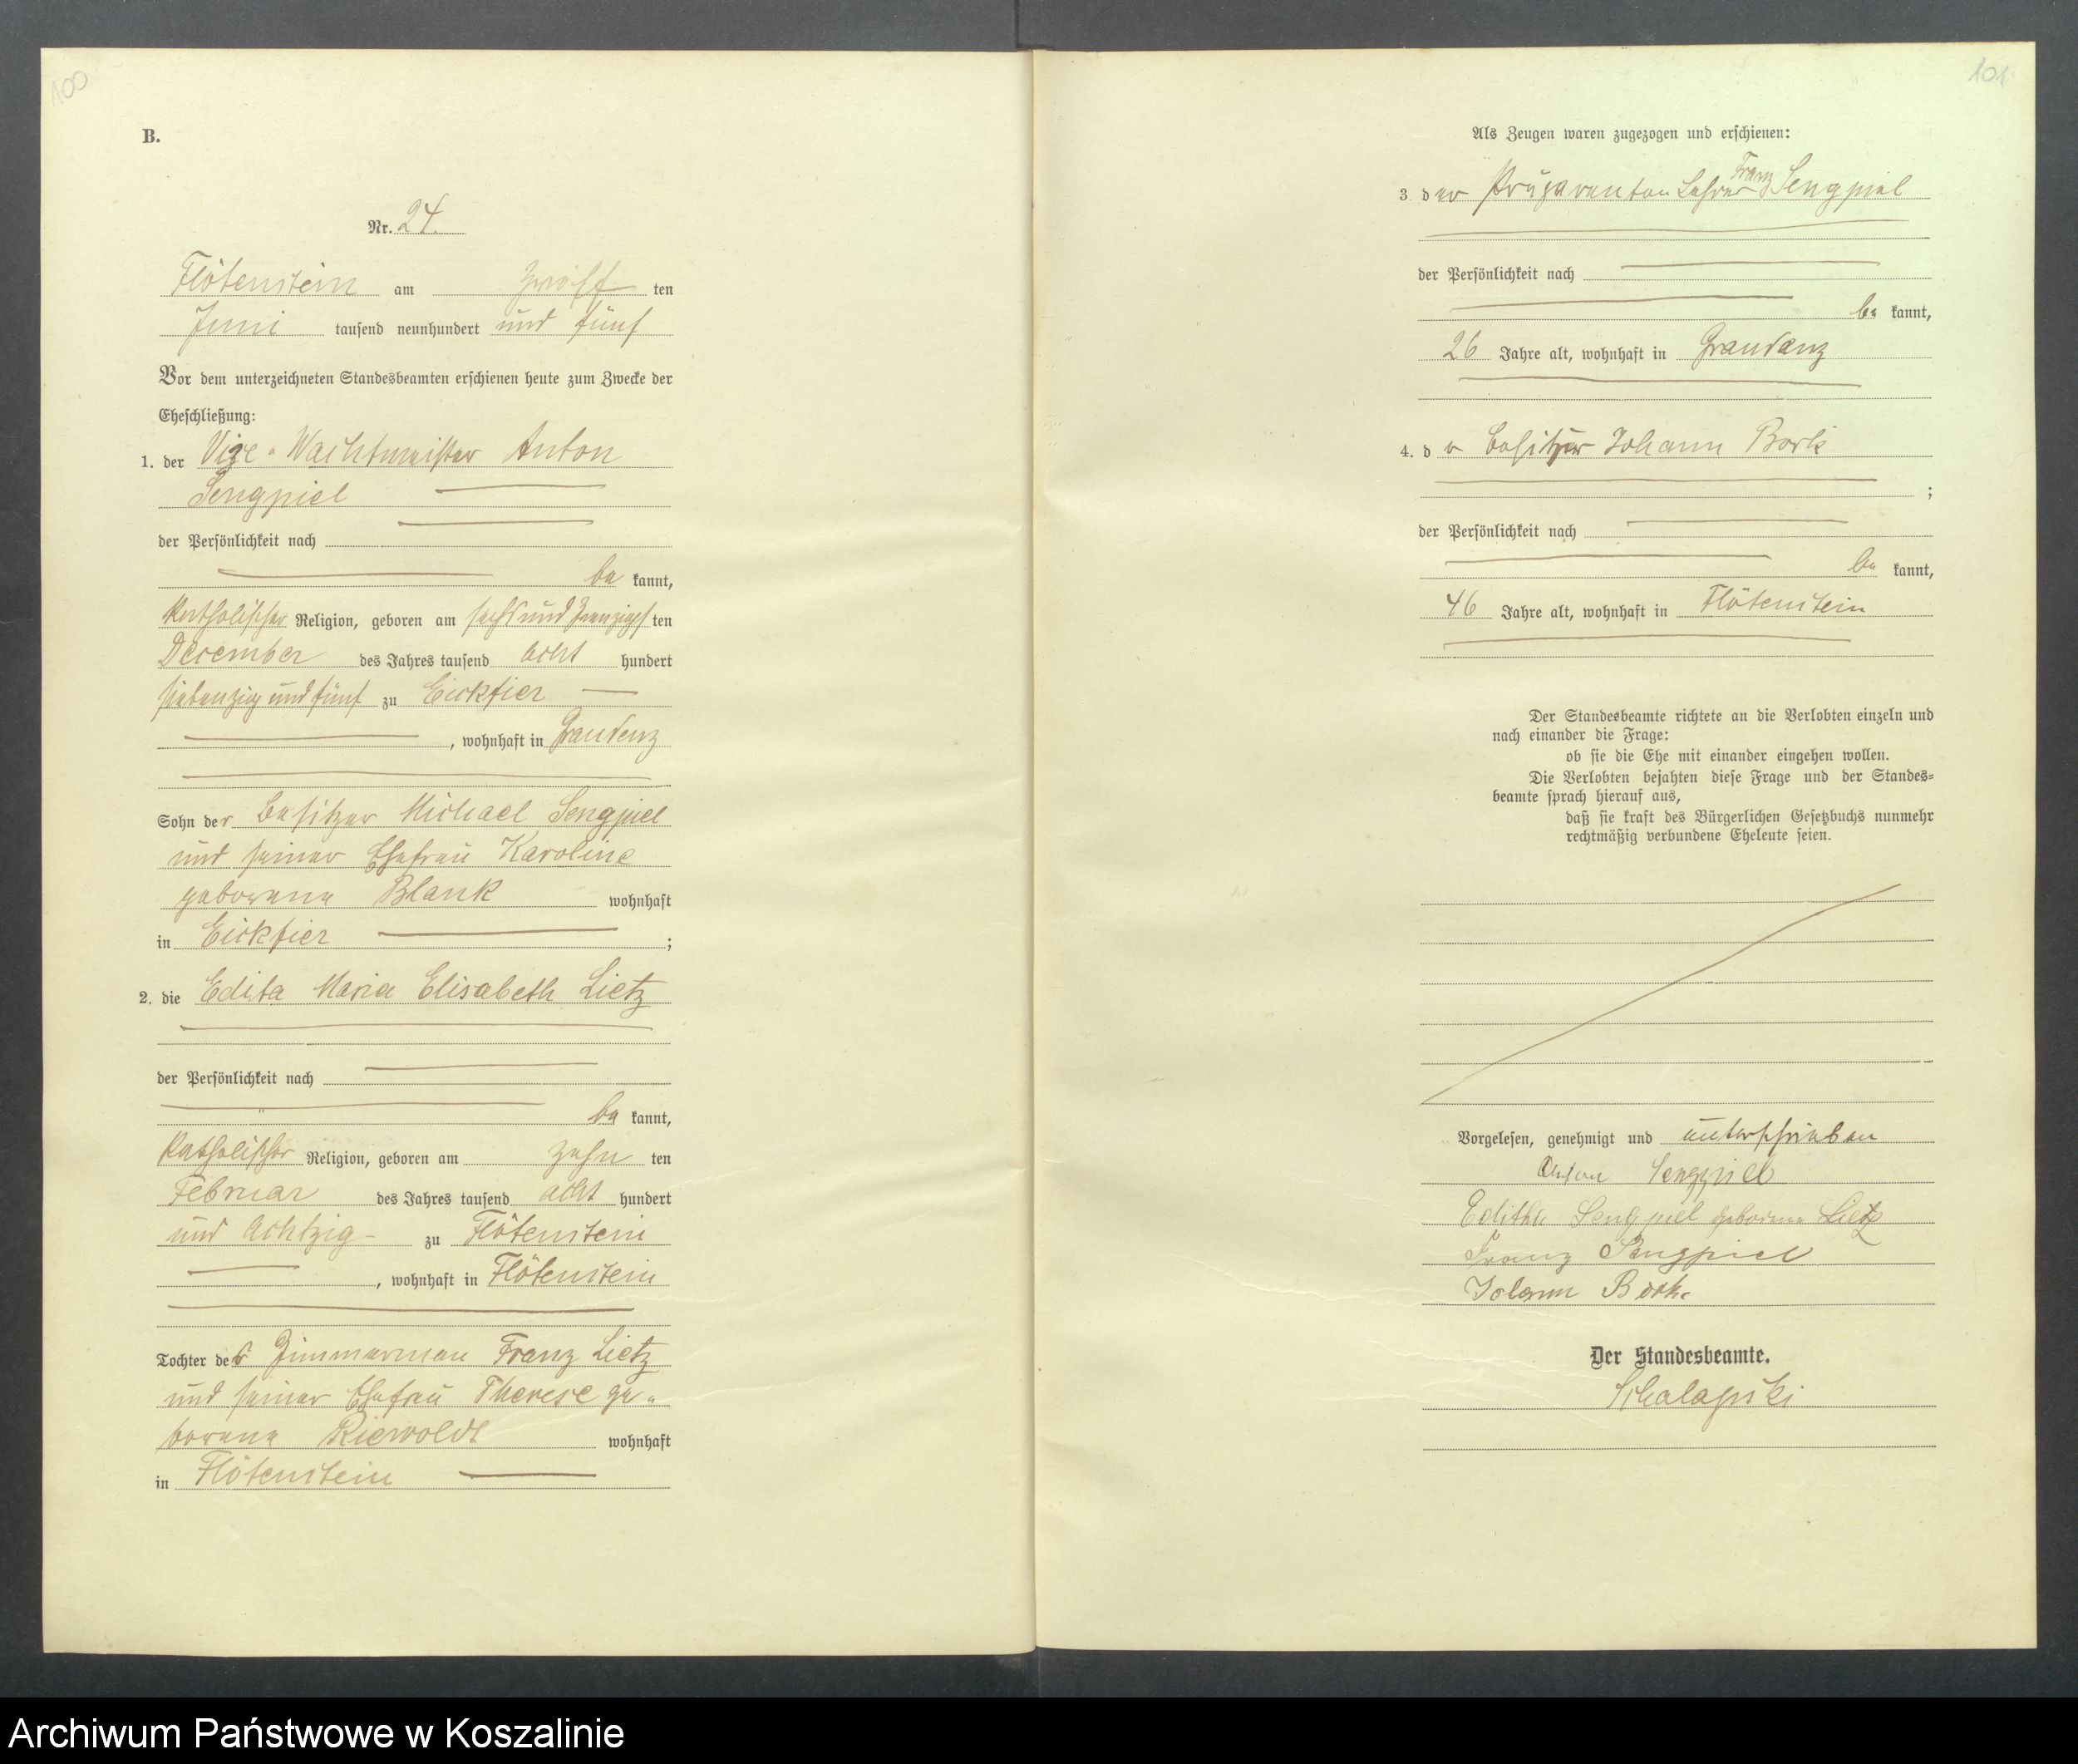 100
B.
Nr. 24.
Flötenstein am zwölf ten
Juni tausend neunhundert und fünf
Vor dem unterzeichneten Standesbeamten erschienen heute zum Zwecke der
Eheschließung:
1. der Vize-Wachtmeister Anton
Sengpiel
der Persönlichkeit nach
be kannt,
katholischer Religion, geboren am sechs und zwanzigs ten
December des Jahres tausend acht hundert
siebenzig und fünf zu Eickfier
, wohnhaft in Graudenz
Sohn der Besitzer Michael Sengpiel
und seiner Ehefrau Karoline
geborene Blank wohnhaft
in Eickfier ;
2. die Edita Maria Elisabeth Lietz
der Persönlichkeit nach
be kannt,
katholischer Religion, geboren am zehn ten
Februar des Jahres tausend acht hundert
und achtzig zu Flötenstein
, wohnhaft in Flötenstein
Tochter des Zimmerman Franz Lietz
und seiner Ehefrau Therese ge-
borene Riewoldt wohnhaft
in Flötenstein
101
Als Zeugen waren zugezogen und erschienen:
3. der Präparanten Lehrer Franz Sengpiel
der Persönlichkeit nach
be kannt,
26 Jahre alt, wohnhaft in Graudanz
4. d r Besitzer Johann Bork
;
der Persönlichkeit nach
be kannt,
46 Jahre alt, wohnhaft in Flötenstein
Der Standesbeamte richtete an die Verlobten einzeln und
nach einander die Frage:
ob sie die Ehe mit einander eingehen wollen.
Die Verlobten bejahten diese Frage und der Standes-
beamte sprach hierauf aus,
daß sie kraft des Bürgerlichen Gesetzbuchs nunmehr
rechtmäßig verbundene Eheleute seien.
Vorgelesen, genehmigt und unterschrieben
Anton Sengpiel
Editha Sengpiel geborene Lietz
Franz Sengpiel
Johann Bork
Der Standesbeamte.
Archiwum Państwowe w Koszalinie